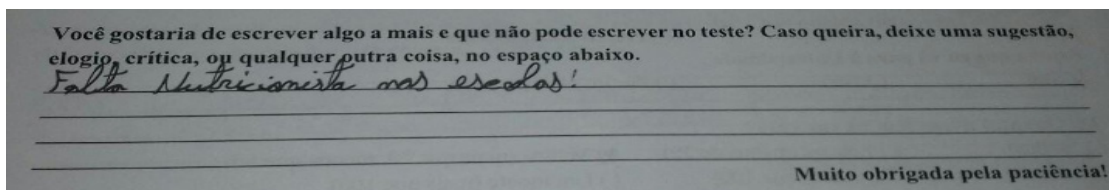 Você gostaria de escrever algo a mais e que não pode escrever no teste? Caso queira, deixe uma sugestão,
elogio, crítica, ou qualquer outra coisa, no espaço abaixo.
Falta Nutricionista nas escolas!
Muito obrigada pela paciência!